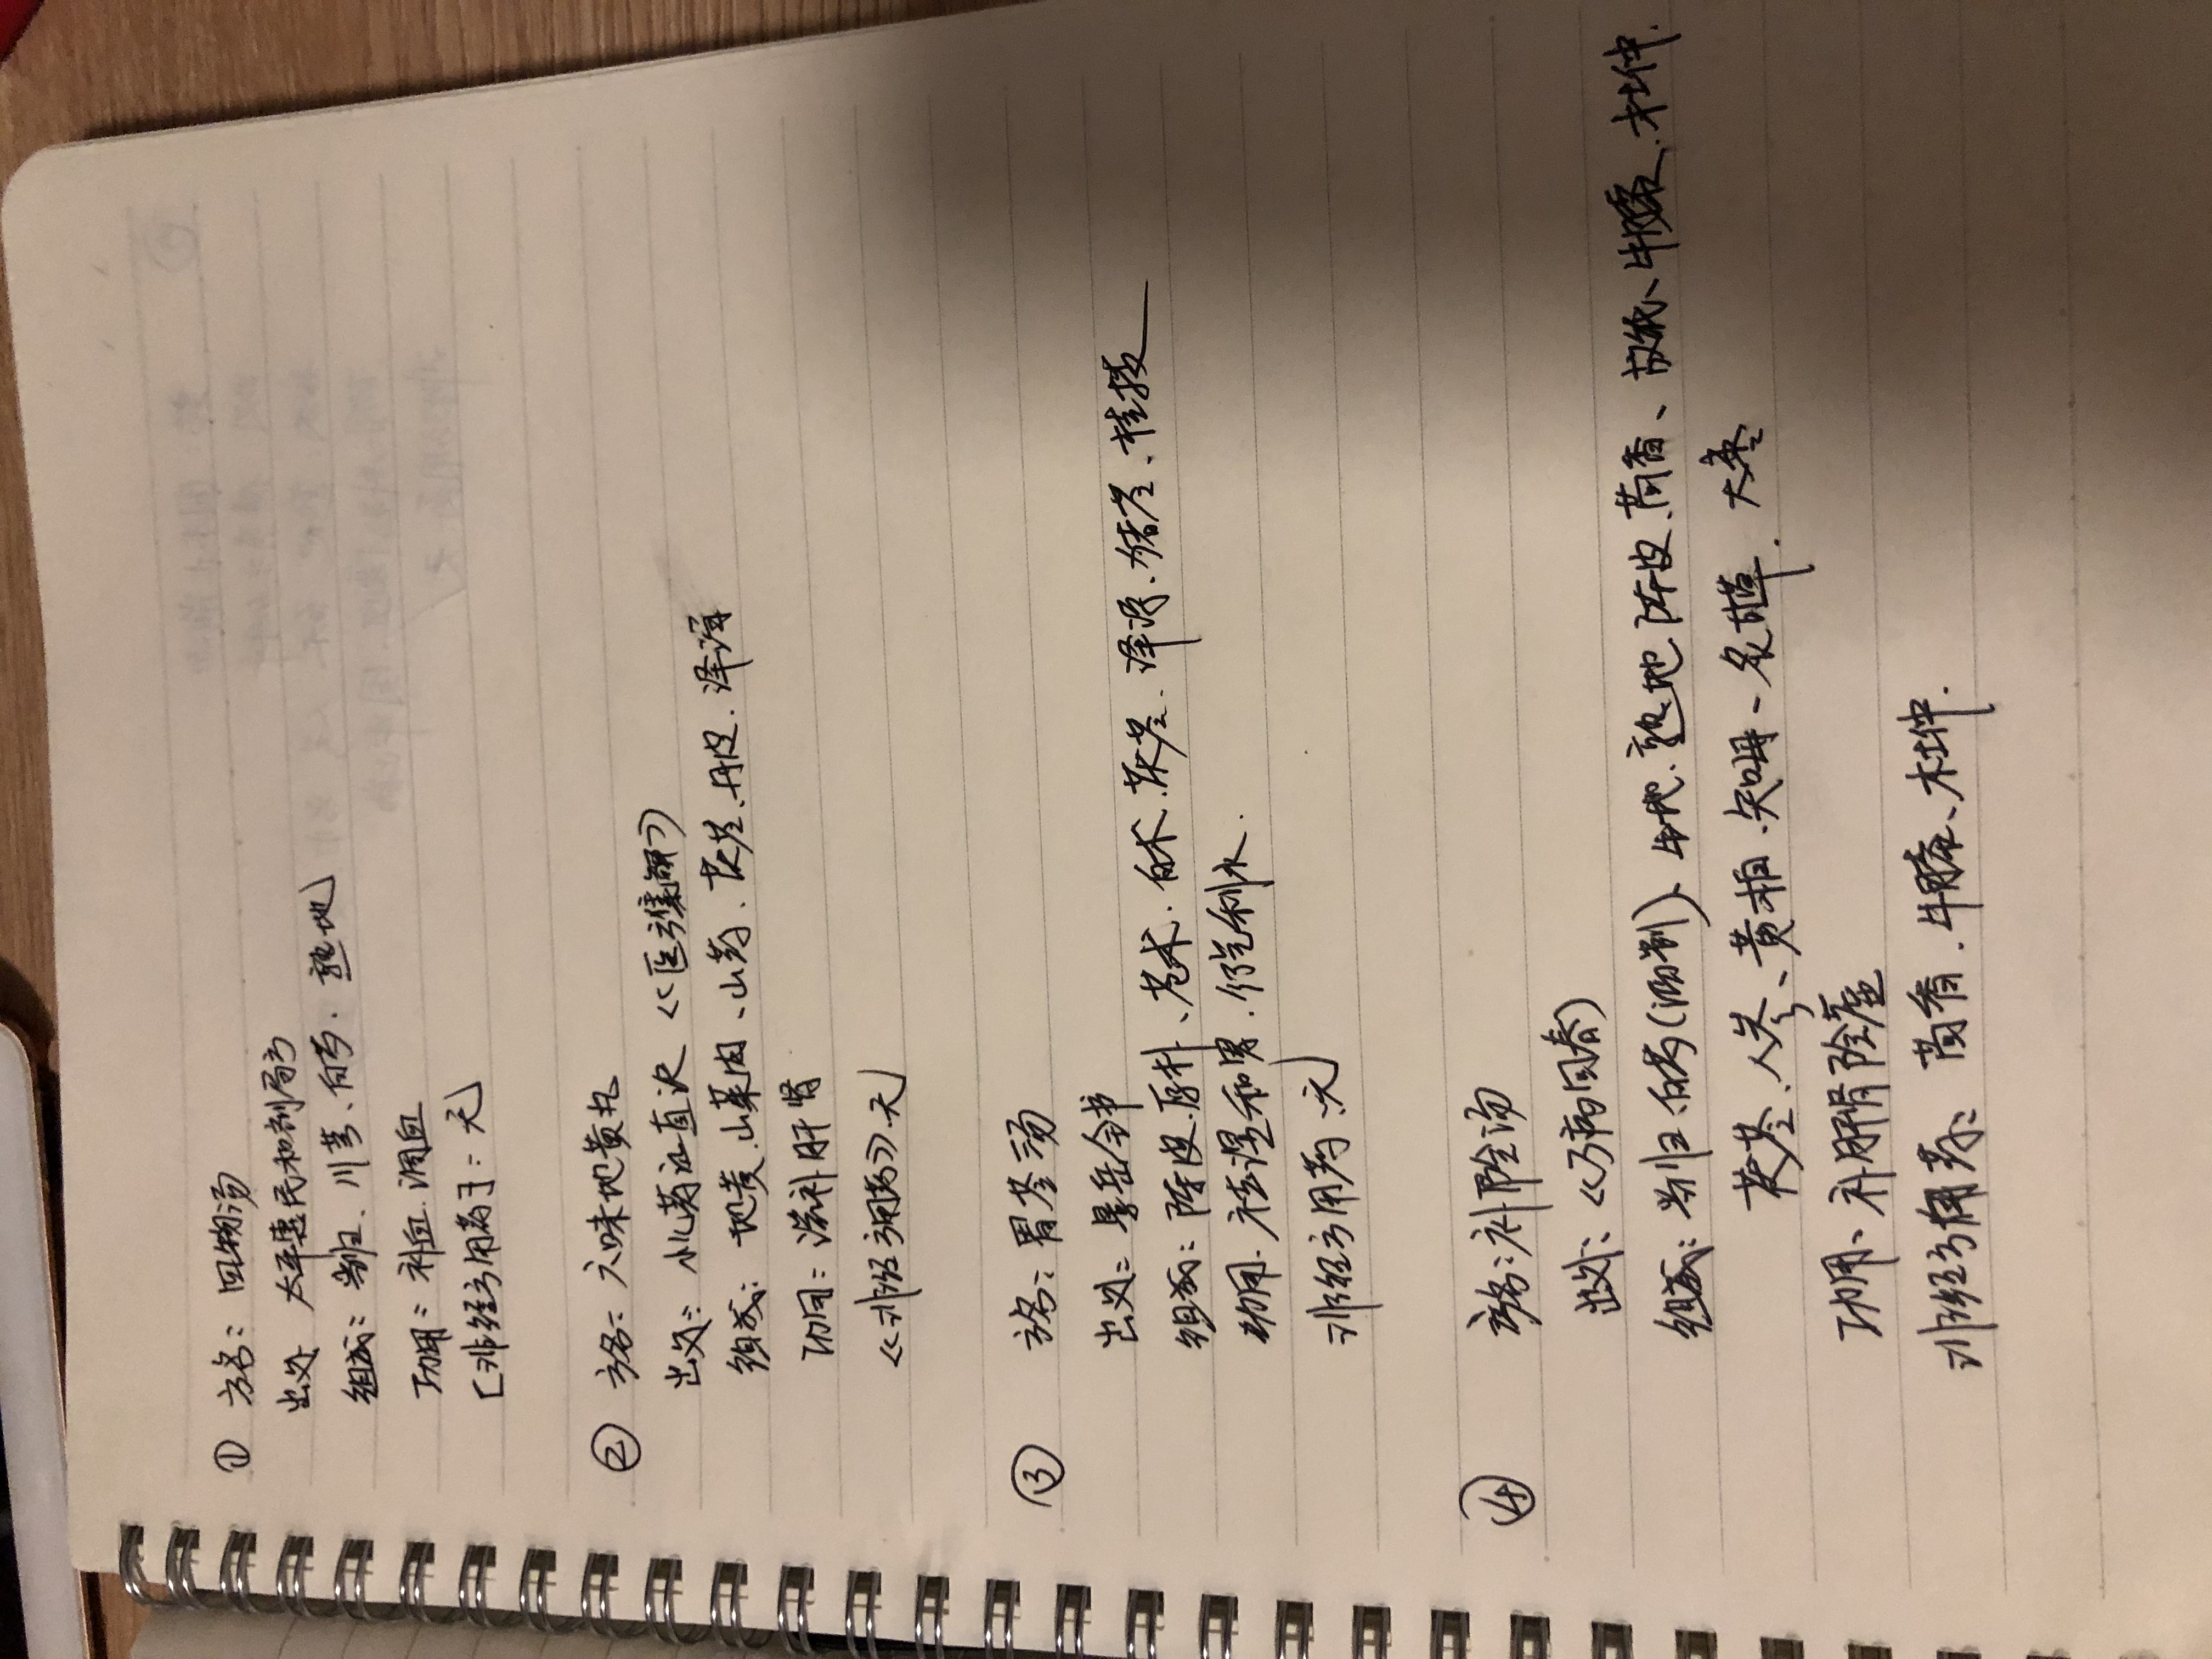 ① 方名：四物汤
出处 太平惠民和剂局方
组成：当归、川芎、白芍．熟地
功用：补血．调血
[非经方用药]：无
② 方名：六味地黄丸
出处：小儿药证直诀《医
组成：地黄．山茱肉、山药．茯苓．丹皮．泽泻
功用：滋补肝肾
《非经方用药》．无
③ 方名：胃苓汤
出处：景岳全书
组成：陈皮．厚朴、苍术．白术．茯苓．泽泻．猪苓、桂枝
功用．祛湿和胃．行气利水．
非经方用药：无
④ 方名：补阴汤
出处：《万病回春》
组成：当归．白芍(酒制)、生地．熟地．陈皮．茴香、故纸、牛膝．杜仲．
茯苓．人参、黄柏．知母、炙甘草．大枣
功用、补肝肾阴虚
非经方用药：茴香．牛膝、杜仲．